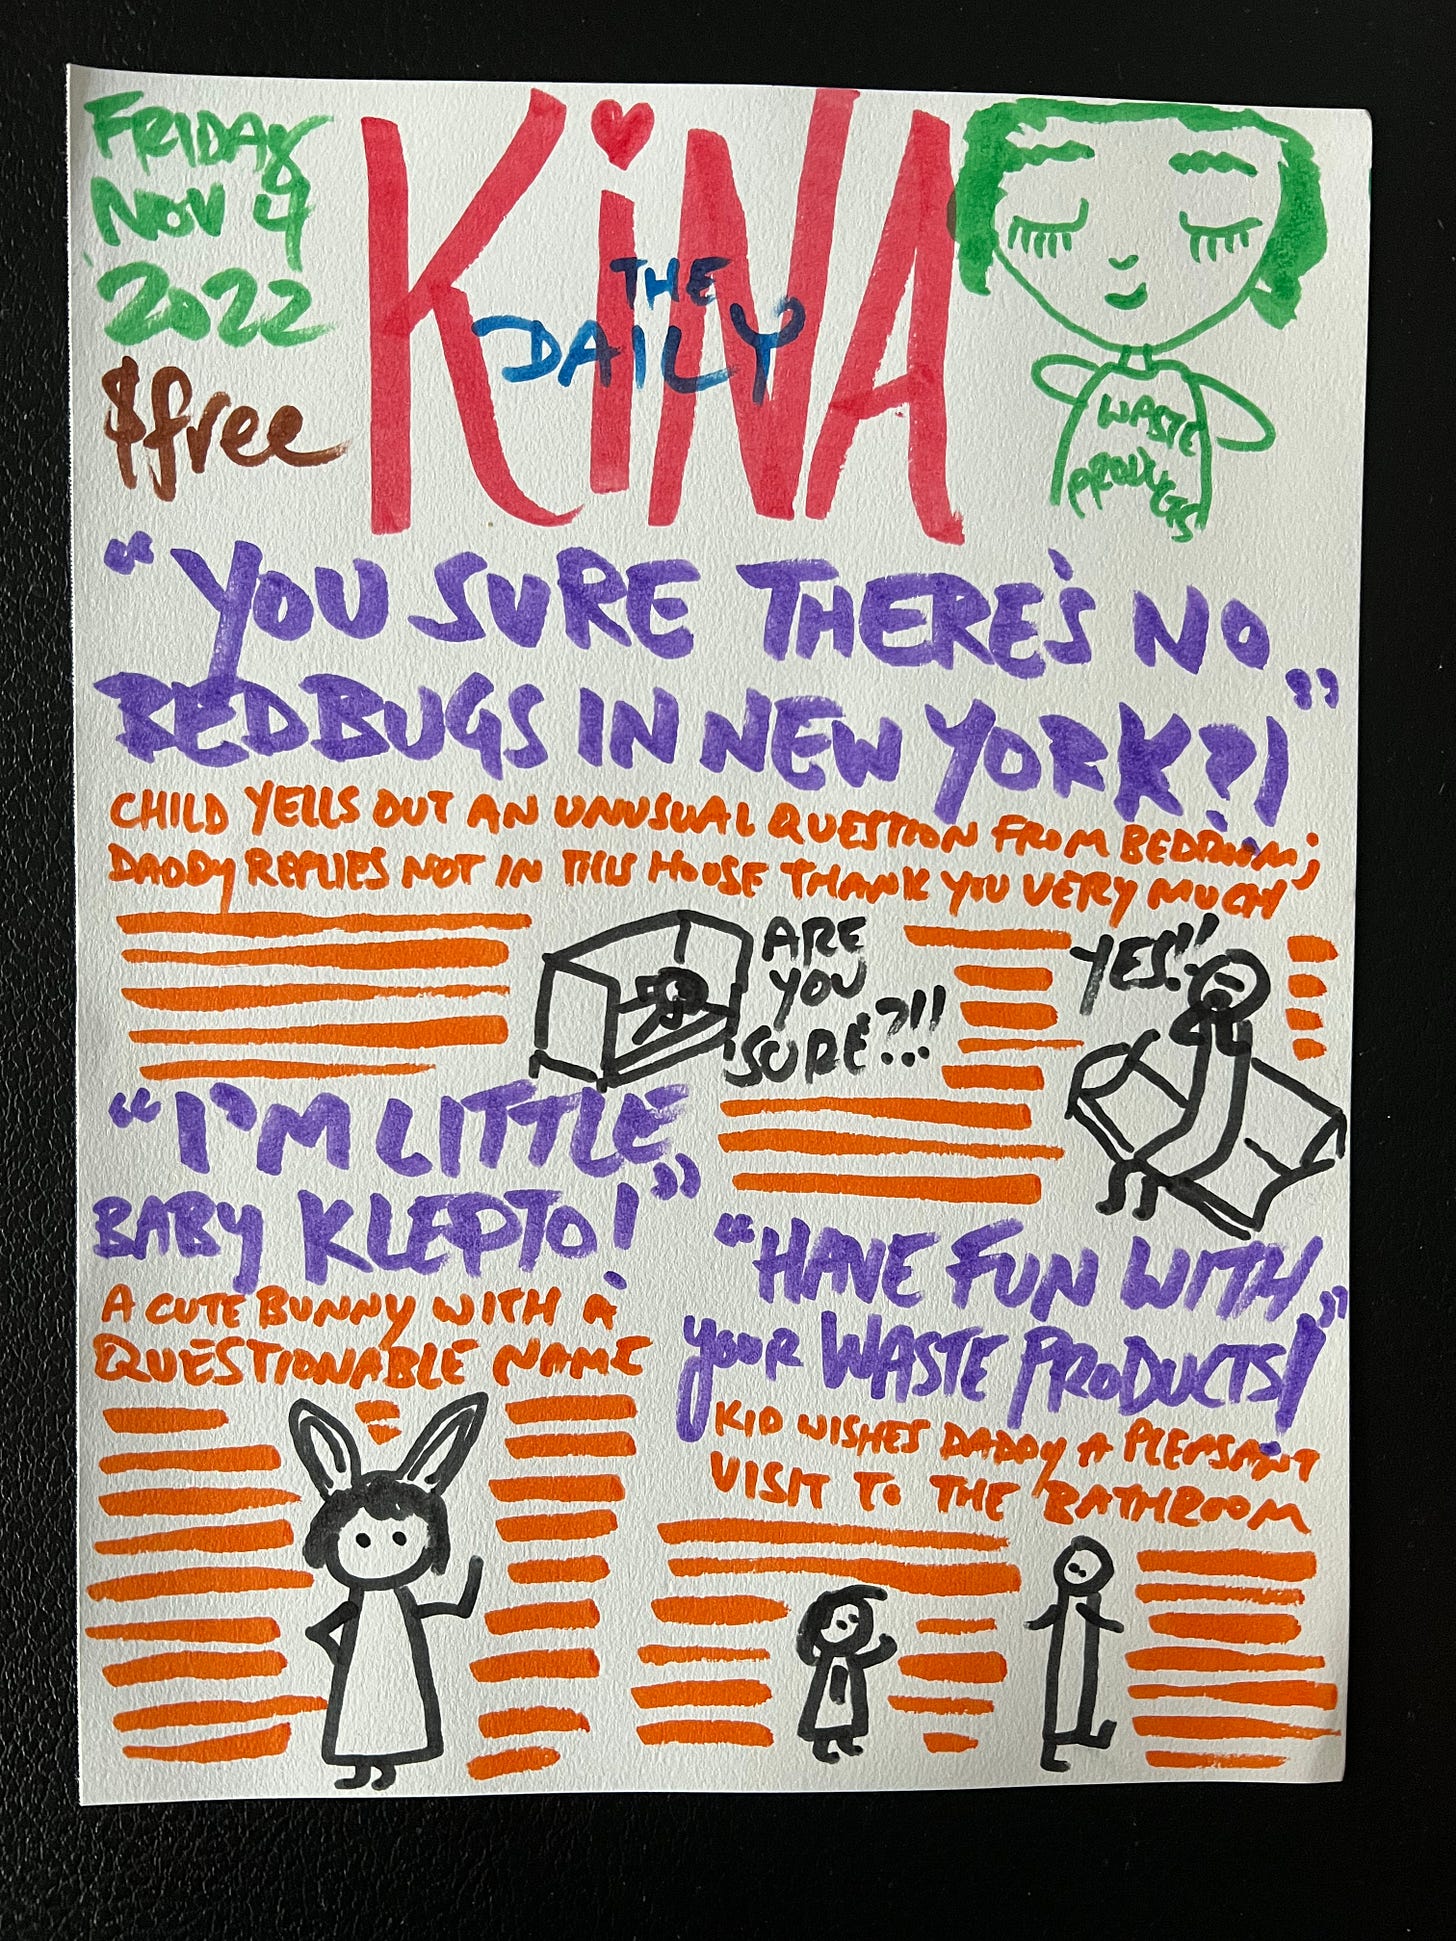 FRIDAY
NOV 4
2022
$free
THE
DAILY
KiNA
WASTE
PRODUCTS
"YOU SURE THERE'S NO
BEDBUGS IN NEW YORK?!"
CHILD YELLS OUT AN UNUSUAL QUESTION FROM BEDROOM;
DADDY REPLIES NOT IN THIS HOUSE THANK YOU VERY MUCH
ARE
YOU
SURE?!!
YES!!
"I'M LITTLE
BABY KLEPTO!"
A CUTE BUNNY WITH A
QUESTIONABLE NAME
"HAVE FUN WITH
your WASTE PRODUCTS!"
KID WISHES DADDY A PLEASANT
VISIT TO THE BATHROOM